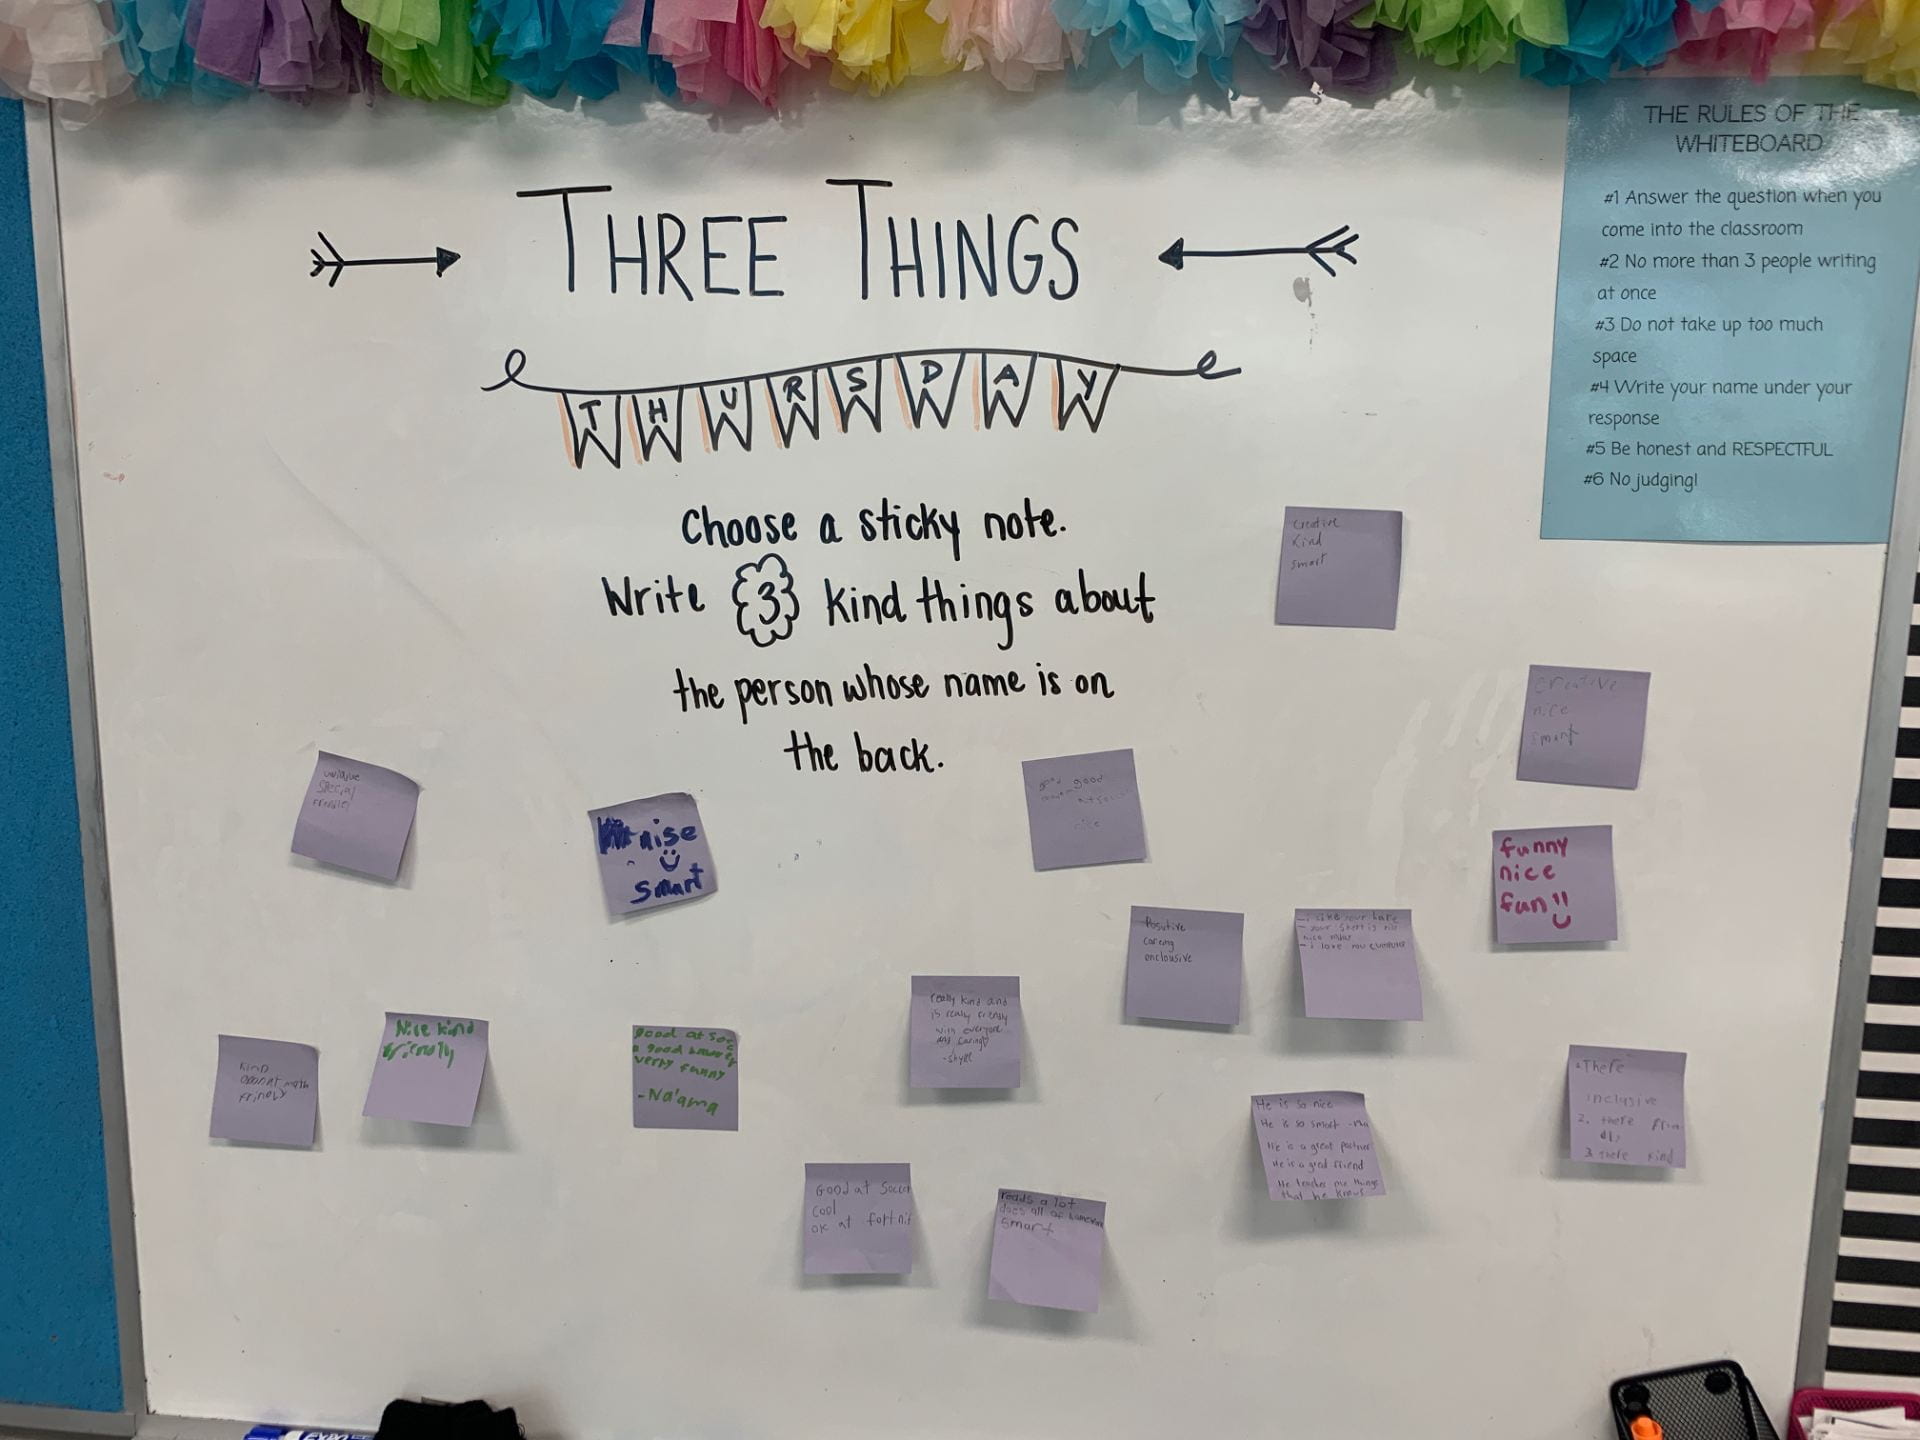 THREE THINGS
THURSDAY
Choose a sticky note.
Write 3 kind things about
the person whose name is on
the back.
THE RULES OF THE
WHITEBOARD
#1 Answer the question when you
come into the classroom
#2 No more than 3 people writing
at once
#3 Do not take up too much
space
#4 Write your name under your
response
#5 Be honest and RESPECTFUL
#6 No judging!
creative
Kind
smart
creative
nice
smart
unique
special
nise
smart
good
nice
funny
nice
fun
Positive
caring
enclousive
- i like your hare
- your shert is
nice
- i love you
really kind and
is really friendly
with everyone
and caring
Nice kind
friendly
good at soc
a good
verry funny
-Na'ama
Kind
math
He is so nice
He is so smart
He is a great partner
He is a great friend
He teaches me things
that he knows
There
inclusive
2. there frin
dly
3 there kind
Good at soccer
cool
ok at fortnit
reads a lot
does all of
smart
EXPO